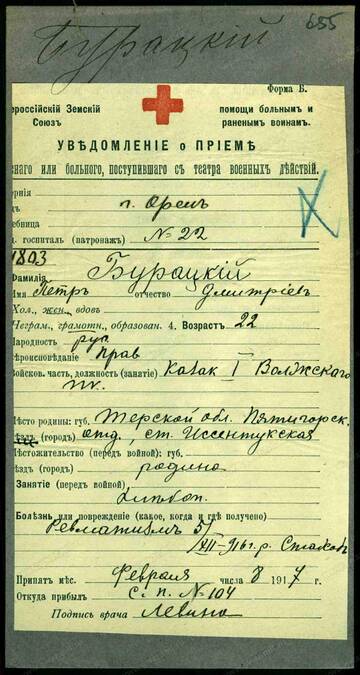 655
Бурацкій
Форма Б.
ероссійскій Земскій
Союзъ
помощи больнымъ и
раненымъ воинамъ.
УВѢДОМЛЕНІЕ о ПРІЕМѢ
наго или больного, поступившаго съ театра военныхъ дѣйствій.
ернія
г. Орелъ
ебница
госпиталь (патронажъ) № 22
1803
Фамилія Бурацкій
Имя Петръ отчество Дмитріевъ
Хол., жен., вдов.
Неграм., грамотн., образован. 4. Возраст 22
Народность рус.
Вѣроисповѣданіе Прав
Войсков. часть, должность (занятіе) Казак I Волжского
п.
Мѣсто родины: губ. Терской обл. Пятигорск.
(городъ) отд., ст. Ессентукская
Мѣстожительство (передъ войной): губ.
ѣздъ (городъ) родина
Занятіе (передъ войной),
хлѣбоп.
Болѣзнь или поврежденіе (какое, когда и гдѣ получено)
Ревматизмъ 5/
XII-916 г. р.
Принятъ мѣс. Февраля числа 8 1917 г.
Откуда прибылъ с. п. № 104
Подпись врача Левина